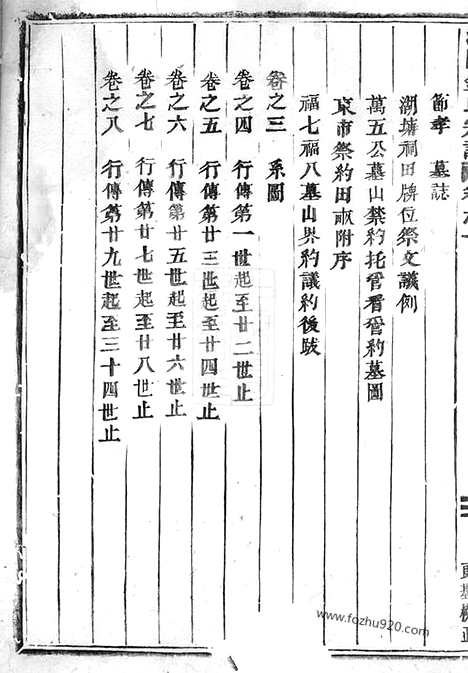 節孝　墓誌
湖塘祠田牌位祭文議例
萬五公墓山禁約托管看管約墓圖
東市祭約田畝附序
福七福八墓山界約議約後跋
卷之三　系圖
卷之四　行傳第一世起至廿二世止
卷之五　行傳第廿三世起至廿四世止
卷之六　行傳第廿五世起至廿六世止
卷之七　行傳第廿七世起至廿八世止
卷之八　行傳第廿九世起至三十四世止
www.fozhu920.com